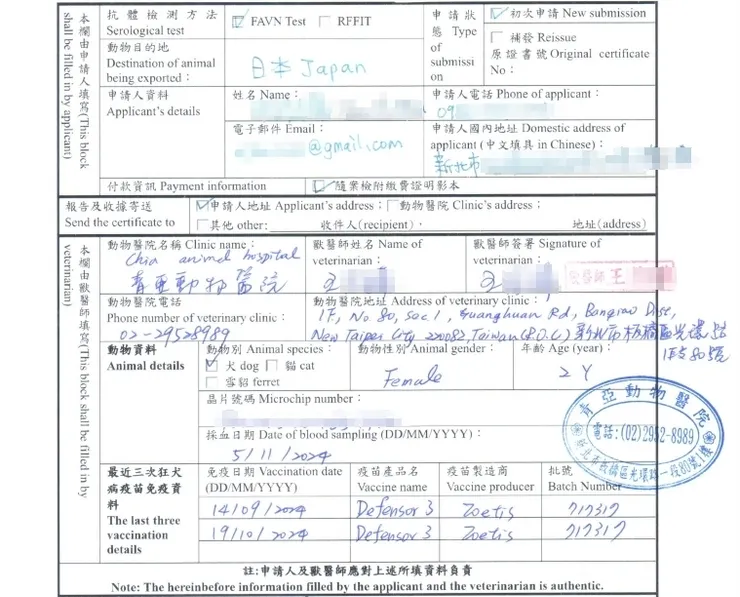 本欄由申請人填寫(This block shall be filled in by applicant)
抗體檢測方法
Serological test
FAVN Test
RFFIT
申請狀態 Type of submission
初次申請 New submission
補發 Reissue
原證書號 Original certificate No：
動物目的地
Destination of animal being exported：
日本 Japan
申請人資料
Applicant's details
姓名 Name：
申請人電話 Phone of applicant：
09
電子郵件 Email：
@gmail.com
申請人國內地址 Domestic address of applicant (中文填具 in Chinese)：
新北市
付款資訊 Payment information
隨案檢附繳費證明影本
報告及收據寄送
Send the certificate to
申請人地址 Applicant's address；動物醫院 Clinic's address；
其他 other: 收件人(recipient)， 地址(address)
本欄由獸醫師填寫(This block shall be filled in by veterinarian)
動物醫院名稱 Clinic name：
Chia animal hospital
青亞動物醫院
獸醫師姓名 Name of veterinarian：
王
獸醫師簽署 Signature of veterinarian：
王
王
動物醫院電話
Phone number of veterinary clinic：
02-29528989
動物醫院地址 Address of veterinary clinic：
1F, No 80, sec 1, Guanghuan Rd, Banqiao Dist,
New Taipei City 220082, Taiwan (R.O.C) 新北市板橋區光環路
1段80號
動物資料
Animal details
動物別 Animal species：
犬 dog 貓 cat
雪貂 ferret
動物性別 Animal gender：
Female
年齡 Age (year)：
2Y
晶片號碼 Microchip number：
採血日期 Date of blood sampling (DD/MM/YYYY)：
5/11/2024
青亞動物醫院
電話：(02)2952-8989
新北市板橋區光環路一段80號1樓
最近三次狂犬病疫苗免疫資料
The last three vaccination details
免疫日期 Vaccination date (DD/MM/YYYY)
疫苗產品名 Vaccine name
疫苗製造商 Vaccine producer
批號 Batch Number
14/09/2024 Defensor 3 Zoetis 717317
19/10/2024 Defensor 3 Zoetis 717317
註:申請人及獸醫師應對上述所填資料負責
Note: The hereinbefore information filled by the applicant and the veterinarian is authentic.